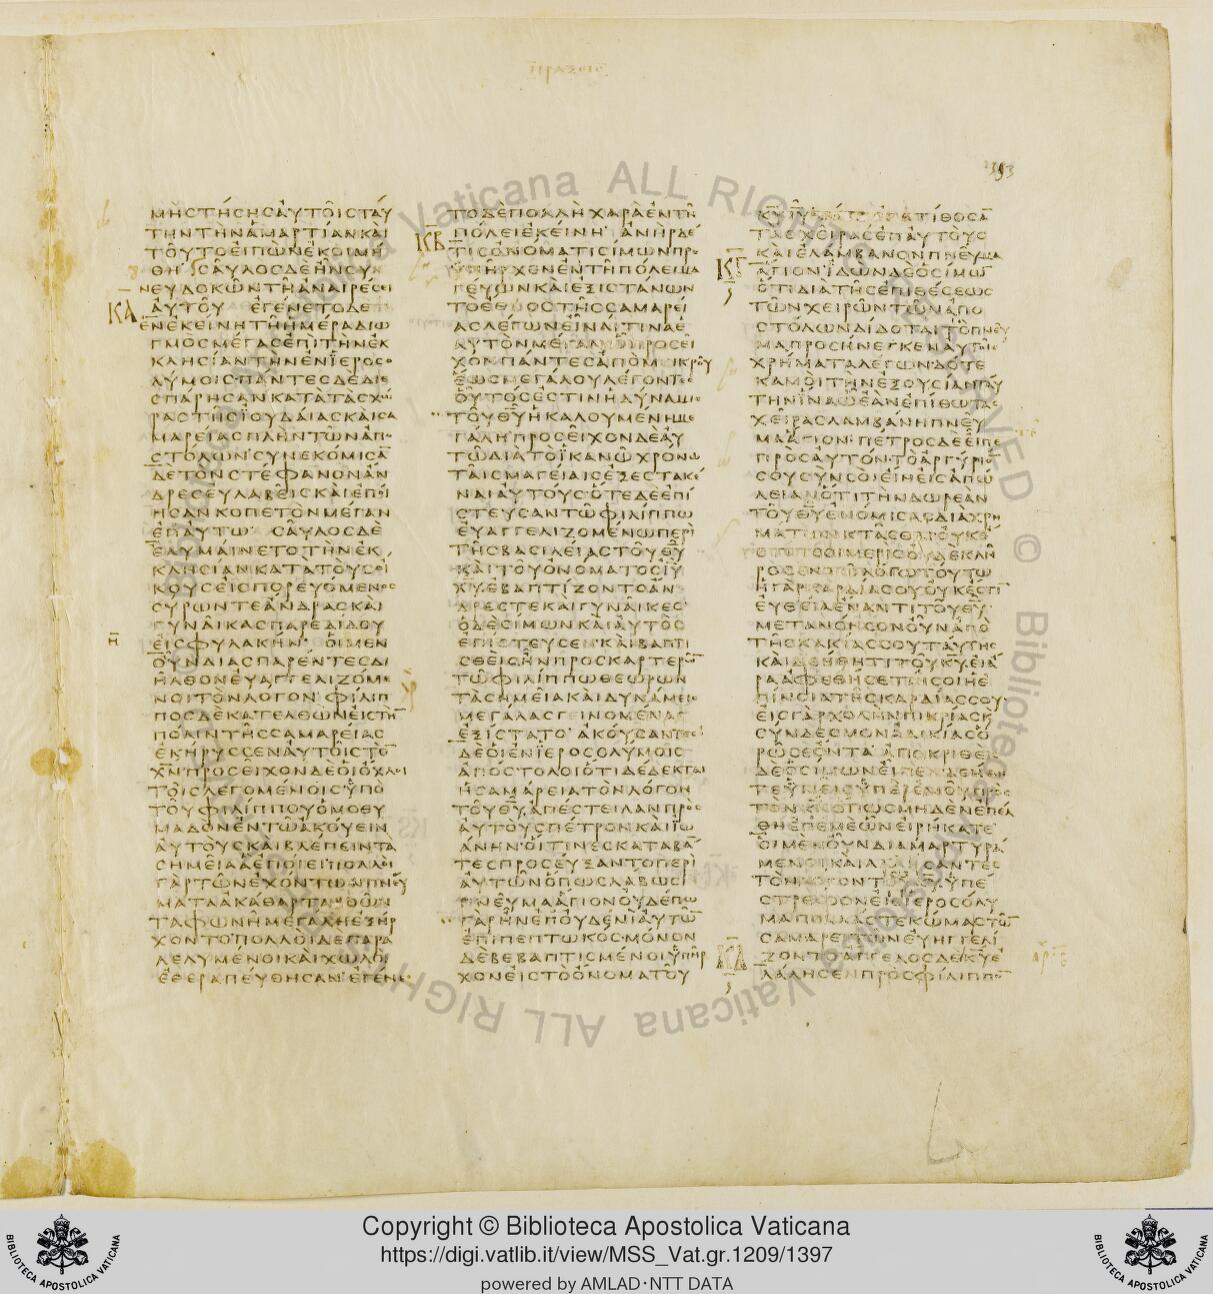 ΠΡΑΞΕΙΣ
ΜΗΣΤΗΣΗΣΑΥΤΟΙΣΤΑΥ
ΤΗΝΤΗΝΑΜΑΡΤΙΑΝΚΑΙ
ΤΟΥΤΟΕΙΠΩΝΕΚΟΙΜΗ
ΘΗ ΣΑΥΛΟΣΔΕΗΝΣΥ
ΝΕΥΔΟΚΩΝΤΗΑΝΑΙΡΕΣΕΙ
ΚΑ
ΑΥΤΟΥ ΕΓΕΝΕΤΟΔΕ
ΕΝΕΚΕΙΝΗΤΗΗΜΕΡΑΔΙΩ
ΓΜΟΣΜΕΓΑΣΕΠΙΤΗΝΕΚ
ΚΛΗΣΙΑΝΤΗΝΕΝΪΕΡΟΣΟ
ΛΥΜΟΙΣ ΠΑΝΤΕΣΔΕΔΙΕ
ΣΠΑΡΗΣΑΝΚΑΤΑΤΑΣΧΩ
ΡΑΣΤΗΣΪΟΥΔΑΙΑΣΚΑΙΣΑ
ΜΑΡΕΙΑΣΠΛΗΝΤΩΝΑΠΟ
ΣΤΟΛΩΝ ΣΥΝΕΚΟΜΙΣΑ̅
ΔΕΤΟΝΣΤΕΦΑΝΟΝΑΝ
ΔΡΕΣΕΥΛΑΒΕΙΣΚΑΙΕΠΟΙ
ΗΣΑΝΚΟΠΕΤΟΝΜΕΓΑΝ
ΕΠΑΥΤΩ ΣΑΥΛΟΣΔΕ
ΕΛΥΜΑΙΝΕΤΟΤΗΝΕΚ
ΚΛΗΣΙΑΝΚΑΤΑΤΟΥΣΟΙ
ΚΟΥΣΕΙΣΠΟΡΕΥΟΜΕΝΟΣ
ΣΥΡΩΝΤΕΑΝΔΡΑΣΚΑΙ
ΓΥΝΑΙΚΑΣΠΑΡΕΔΙΔΟΥ
Η
ΕΙΣΦΥΛΑΚΗΝ ΟΙΜΕΝ
ΟΥΝΔΙΑΣΠΑΡΕΝΤΕΣΔΙ
ΗΛΘΟΝΕΥΑΓΓΕΛΙΖΟΜΕ
ΝΟΙΤΟΝΛΟΓΟΝ ΦΙΛΙΠ
ΠΟΣΔΕΚΑΤΕΛΘΩΝΕΙΣΤΗ̅
ΠΟΛΙΝΤΗΣΣΑΜΑΡΕΙΑΣ
ΕΚΗΡΥΣΣΕΝΑΥΤΟΙΣΤΟ̅
Χ̅Ν̅ ΠΡΟΣΕΙΧΟΝΔΕΟΙΟΧΛΟΙ
ΤΟΙΣΛΕΓΟΜΕΝΟΙΣΥΠΟ
ΤΟΥΦΙΛΙΠΠΟΥΟΜΟΘΥ
ΜΑΔΟΝΕΝΤΩΑΚΟΥΕΙΝ
ΑΥΤΟΥΣΚΑΙΒΛΕΠΕΙΝΤΑ
ΣΗΜΕΙΑΑΕΠΟΙΕΙ ΠΟΛΛΟΙ
ΓΑΡΤΩΝΕΧΟΝΤΩΝΠΝΕΥ
ΜΑΤΑΑΚΑΘΑΡΤΑΒΟΩΝ
ΤΑΦΩΝΗΜΕΓΑΛΗΕΞΗΡ
ΧΟΝΤΟ ΠΟΛΛΟΙΔΕΠΑΡΑ
ΛΕΛΥΜΕΝΟΙΚΑΙΧΩΛΟΙ
ΕΘΕΡΑΠΕΥΘΗΣΑΝ ΕΓΕΝΕ
ΤΟΔΕΠΟΛΛΗΧΑΡΑΕΝΤΗ
ΚΒ
ΠΟΛΕΙΕΚΕΙΝΗ ΑΝΗΡΔΕ
ΤΙΣΟΝΟΜΑΤΙΣΙΜΩΝΠΡΟ
ΥΠΗΡΧΕΝΕΝΤΗΠΟΛΕΙΜΑ
ΓΕΥΩΝΚΑΙΕΞΙΣΤΑΝΩΝ
ΤΟΕΘΝΟΣΤΗΣΣΑΜΑΡΕΙ
ΑΣΛΕΓΩΝΕΙΝΑΙΤΙΝΑΕ
ΑΥΤΟΝΜΕΓΑΝΩΠΡΟΣΕΙ
ΧΟΝΠΑΝΤΕΣΑΠΟΜΕΙΚΡΟΥ
ΕΩΣΜΕΓΑΛΟΥΛΕΓΟΝΤΕΣ
ΟΥΤΟΣΕΣΤΙΝΗΔΥΝΑΜΙΣ
ΤΟΥΘ̅Υ̅ΗΚΑΛΟΥΜΕΝΗΜΕ
ΓΑΛΗ ΠΡΟΣΕΙΧΟΝΔΕΑΥ
ΤΩΔΙΑΤΟΪΚΑΝΩΧΡΟΝΩ
ΤΑΙΣΜΑΓΕΙΑΙΣΕΞΕΣΤΑΚΕ
ΝΑΙΑΥΤΟΥΣ ΟΤΕΔΕΕΠΙ
ΣΤΕΥΣΑΝΤΩΦΙΛΙΠΠΩ
ΕΥΑΓΓΕΛΙΖΟΜΕΝΩΠΕΡΙ
ΤΗΣΒΑΣΙΛΕΙΑΣΤΟΥΘ̅Υ̅
ΚΑΙΤΟΥΟΝΟΜΑΤΟΣΙ̅Υ̅
Χ̅Υ̅ ΕΒΑΠΤΙΖΟΝΤΟΑΝ
ΔΡΕΣΤΕΚΑΙΓΥΝΑΙΚΕΣ
ΟΔΕΣΙΜΩΝΚΑΙΑΥΤΟΣ
ΕΠΙΣΤΕΥΣΕΝΚΑΙΒΑΠΤΙ
ΣΘΕΙΣΗΝΠΡΟΣΚΑΡΤΕΡΩ̅
ΤΩΦΙΛΙΠΠΩΘΕΩΡΩΝ
ΤΑΣΗΜΕΙΑΚΑΙΔΥΝΑΜΕΙΣ
ΜΕΓΑΛΑΣΓΕΙΝΟΜΕΝΑΣ
ΕΞΙΣΤΑΤΟ ΑΚΟΥΣΑΝΤΕΣ
ΔΕΟΙΕΝΪΕΡΟΣΟΛΥΜΟΙΣ
ΑΠΟΣΤΟΛΟΙΟΤΙΔΕΔΕΚΤΑΙ
ΗΣΑΜΑΡΕΙΑΤΟΝΛΟΓΟΝ
ΤΟΥΘ̅Υ̅ΑΠΕΣΤΕΙΛΑΝΠΡΟΣ
ΑΥΤΟΥΣΠΕΤΡΟΝΚΑΙΪΩ
ΑΝΗΝ ΟΙΤΙΝΕΣΚΑΤΑΒΑ̅
ΤΕΣΠΡΟΣΕΥΞΑΝΤΟΠΕΡΙ
ΑΥΤΩΝΟΠΩΣΛΑΒΩΣΙ
ΠΝΕΥΜΑΑΓΙΟΝΟΥΔΕΠΩ
ΓΑΡΗΝΕΠΟΥΔΕΝΙΑΥΤΩ̅
ΕΠΙΠΕΠΤΩΚΟΣ ΜΟΝΟΝ
ΔΕΒΕΒΑΠΤΙΣΜΕΝΟΙΥΠΗΡ
ΧΟΝΕΙΣΤΟΟΝΟΜΑΤΟΥ
Κ̅Υ̅Ι̅Υ̅ ΤΟΤΕΕΠΕΤΙΘΟΣΑ̅
ΤΑΣΧΕΙΡΑΣΕΠΑΥΤΟΥΣ
ΚΑΙΕΛΑΜΒΑΝΟΝΠΝΕΥΜΑ
ΚΓ
ΑΓΙΟΝ ΪΔΩΝΔΕΟΣΙΜΩ̅
ΟΤΙΔΙΑΤΗΣΕΠΙΘΕΣΕΩΣ
ΤΩΝΧΕΙΡΩΝΤΩΝΑΠΟ
ΣΤΟΛΩΝΔΙΔΟΤΑΙΤΟΠΝΕΥ
ΜΑΠΡΟΣΗΝΕΓΚΕΝΑΥΤΟΙΣ
ΧΡΗΜΑΤΑΛΕΓΩΝ ΔΟΤΕ
ΚΑΜΟΙΤΗΝΕΞΟΥΣΙΑΝΤΑΥ
ΤΗΝΪΝΑΩΕΑΝΕΠΙΘΩΤΑΣ
ΧΕΙΡΑΣΛΑΜΒΑΝΗΠΝΕΥ
ΜΑΑΓΙΟΝ ΠΕΤΡΟΣΔΕΕΙΠΕ
ΠΡΟΣΑΥΤΟΝ ΤΟΑΡΓΥΡΙΟ̅
ΣΟΥΣΥΝΣΟΙΕΙΗΕΙΣΑΠΩ
ΛΕΙΑΝΟΤΙΤΗΝΔΩΡΕΑΝ
ΤΟΥΘ̅Υ̅ΕΝΟΜΙΣΑΣΔΙΑΧΡΗ
ΜΑΤΩΝΚΤΑΣΘΑΙ ΟΥΚΕ
ΣΤΙΣΟΙΜΕΡΙΣΟΥΔΕΚΛΗ
ΡΟΣΕΝΤΩΛΟΓΩΤΟΥΤΩ
ΗΓΑΡΚΑΡΔΙΑΣΟΥΟΥΚΕΣΤΙ̅
ΕΥΘΕΙΑΕΝΑΝΤΙΤΟΥΘ̅Υ̅
ΜΕΤΑΝΟΗΣΟΝΟΥΝΑΠΟ
ΤΗΣΚΑΚΙΑΣΣΟΥΤΑΥΤΗΣ
ΚΑΙΔΕΗΘΗΤΙΤΟΥΚ̅Υ̅ΕΙΑ
ΡΑΑΦΕΘΗΣΕΤΑΙΣΟΙΗΕ
ΠΙΝΟΙΑΤΗΣΚΑΡΔΙΑΣΣΟΥ
ΕΙΣΓΑΡΧΟΛΗΝΠΙΚΡΙΑΣΚ
ΣΥΝΔΕΣΜΟΝΑΔΙΚΙΑΣΟ
ΡΩΣΕΟΝΤΑ ΑΠΟΚΡΙΘΕΙΣ
ΔΕΟΣΙΜΩΝΕΙΠΕΝΔΕΗΘΗ
ΤΕΥΜΕΙΣΥΠΕΡΕΜΟΥΠΡΟΣ
ΤΟΝΚ̅Ν̅ΟΠΩΣΜΗΔΕΝΕΠΕΛ
ΘΗΕΠΕΜΕΩΝΕΙΡΗΚΑΤΕ
ΟΙΜΕΝΟΥΝΔΙΑΜΑΡΤΥΡΑ
ΜΕΝΟΙΚΑΙΛΑΛΗΣΑΝΤΕΣ
ΤΟΝΛΟΓΟΝΤΟΥΚ̅Υ̅ΥΠΕ
ΣΤΡΕΦΟΝΕΙΣΪΕΡΟΣΟΛΥ
ΜΑΠΟΛΛΑΣΤΕΚΩΜΑΣΤΩ̅
ΣΑΜΑΡΕΙΤΩΝΕΥΗΓΓΕΛΙ
ΚΔ
ΖΟΝΤΟ ΑΓΓΕΛΟΣΔΕΚ̅Υ̅Ε
ΛΑΛΗΣΕΝΠΡΟΣΦΙΛΙΠΠΟ̅
Copyright © Biblioteca Apostolica Vaticana
https://digi.vatlib.it/view/MSS_Vat.gr.1209/1397
powered by AMLAD·NTT DATA
BIBLIOTECA APOSTOLICA VATICANA
BIBLIOTECA APOSTOLICA VATICANA